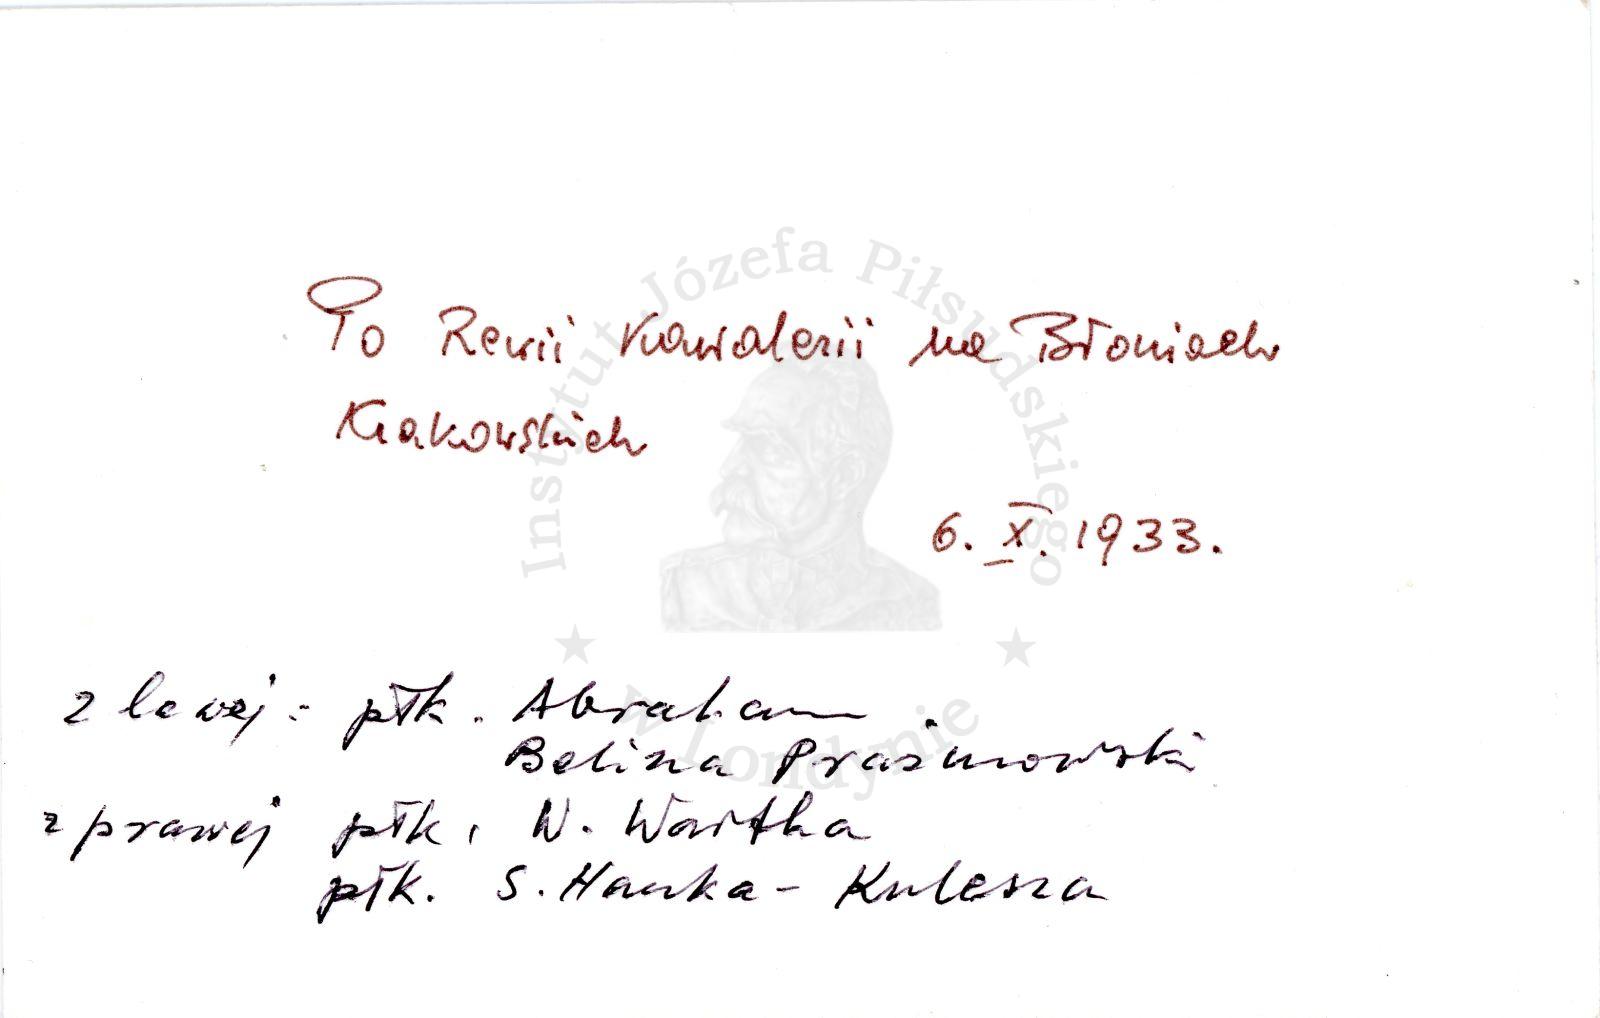 Po Rewii Kawalerii na Błoniach
Krakowskich
6. X. 1933.
z lewej: płk. Abraham
Belina Prażmowski
z prawej płk. W. Wartha
płk. S. Hanka-Kulesza
Instytut Józefa Piłsudskiego
w Londynie